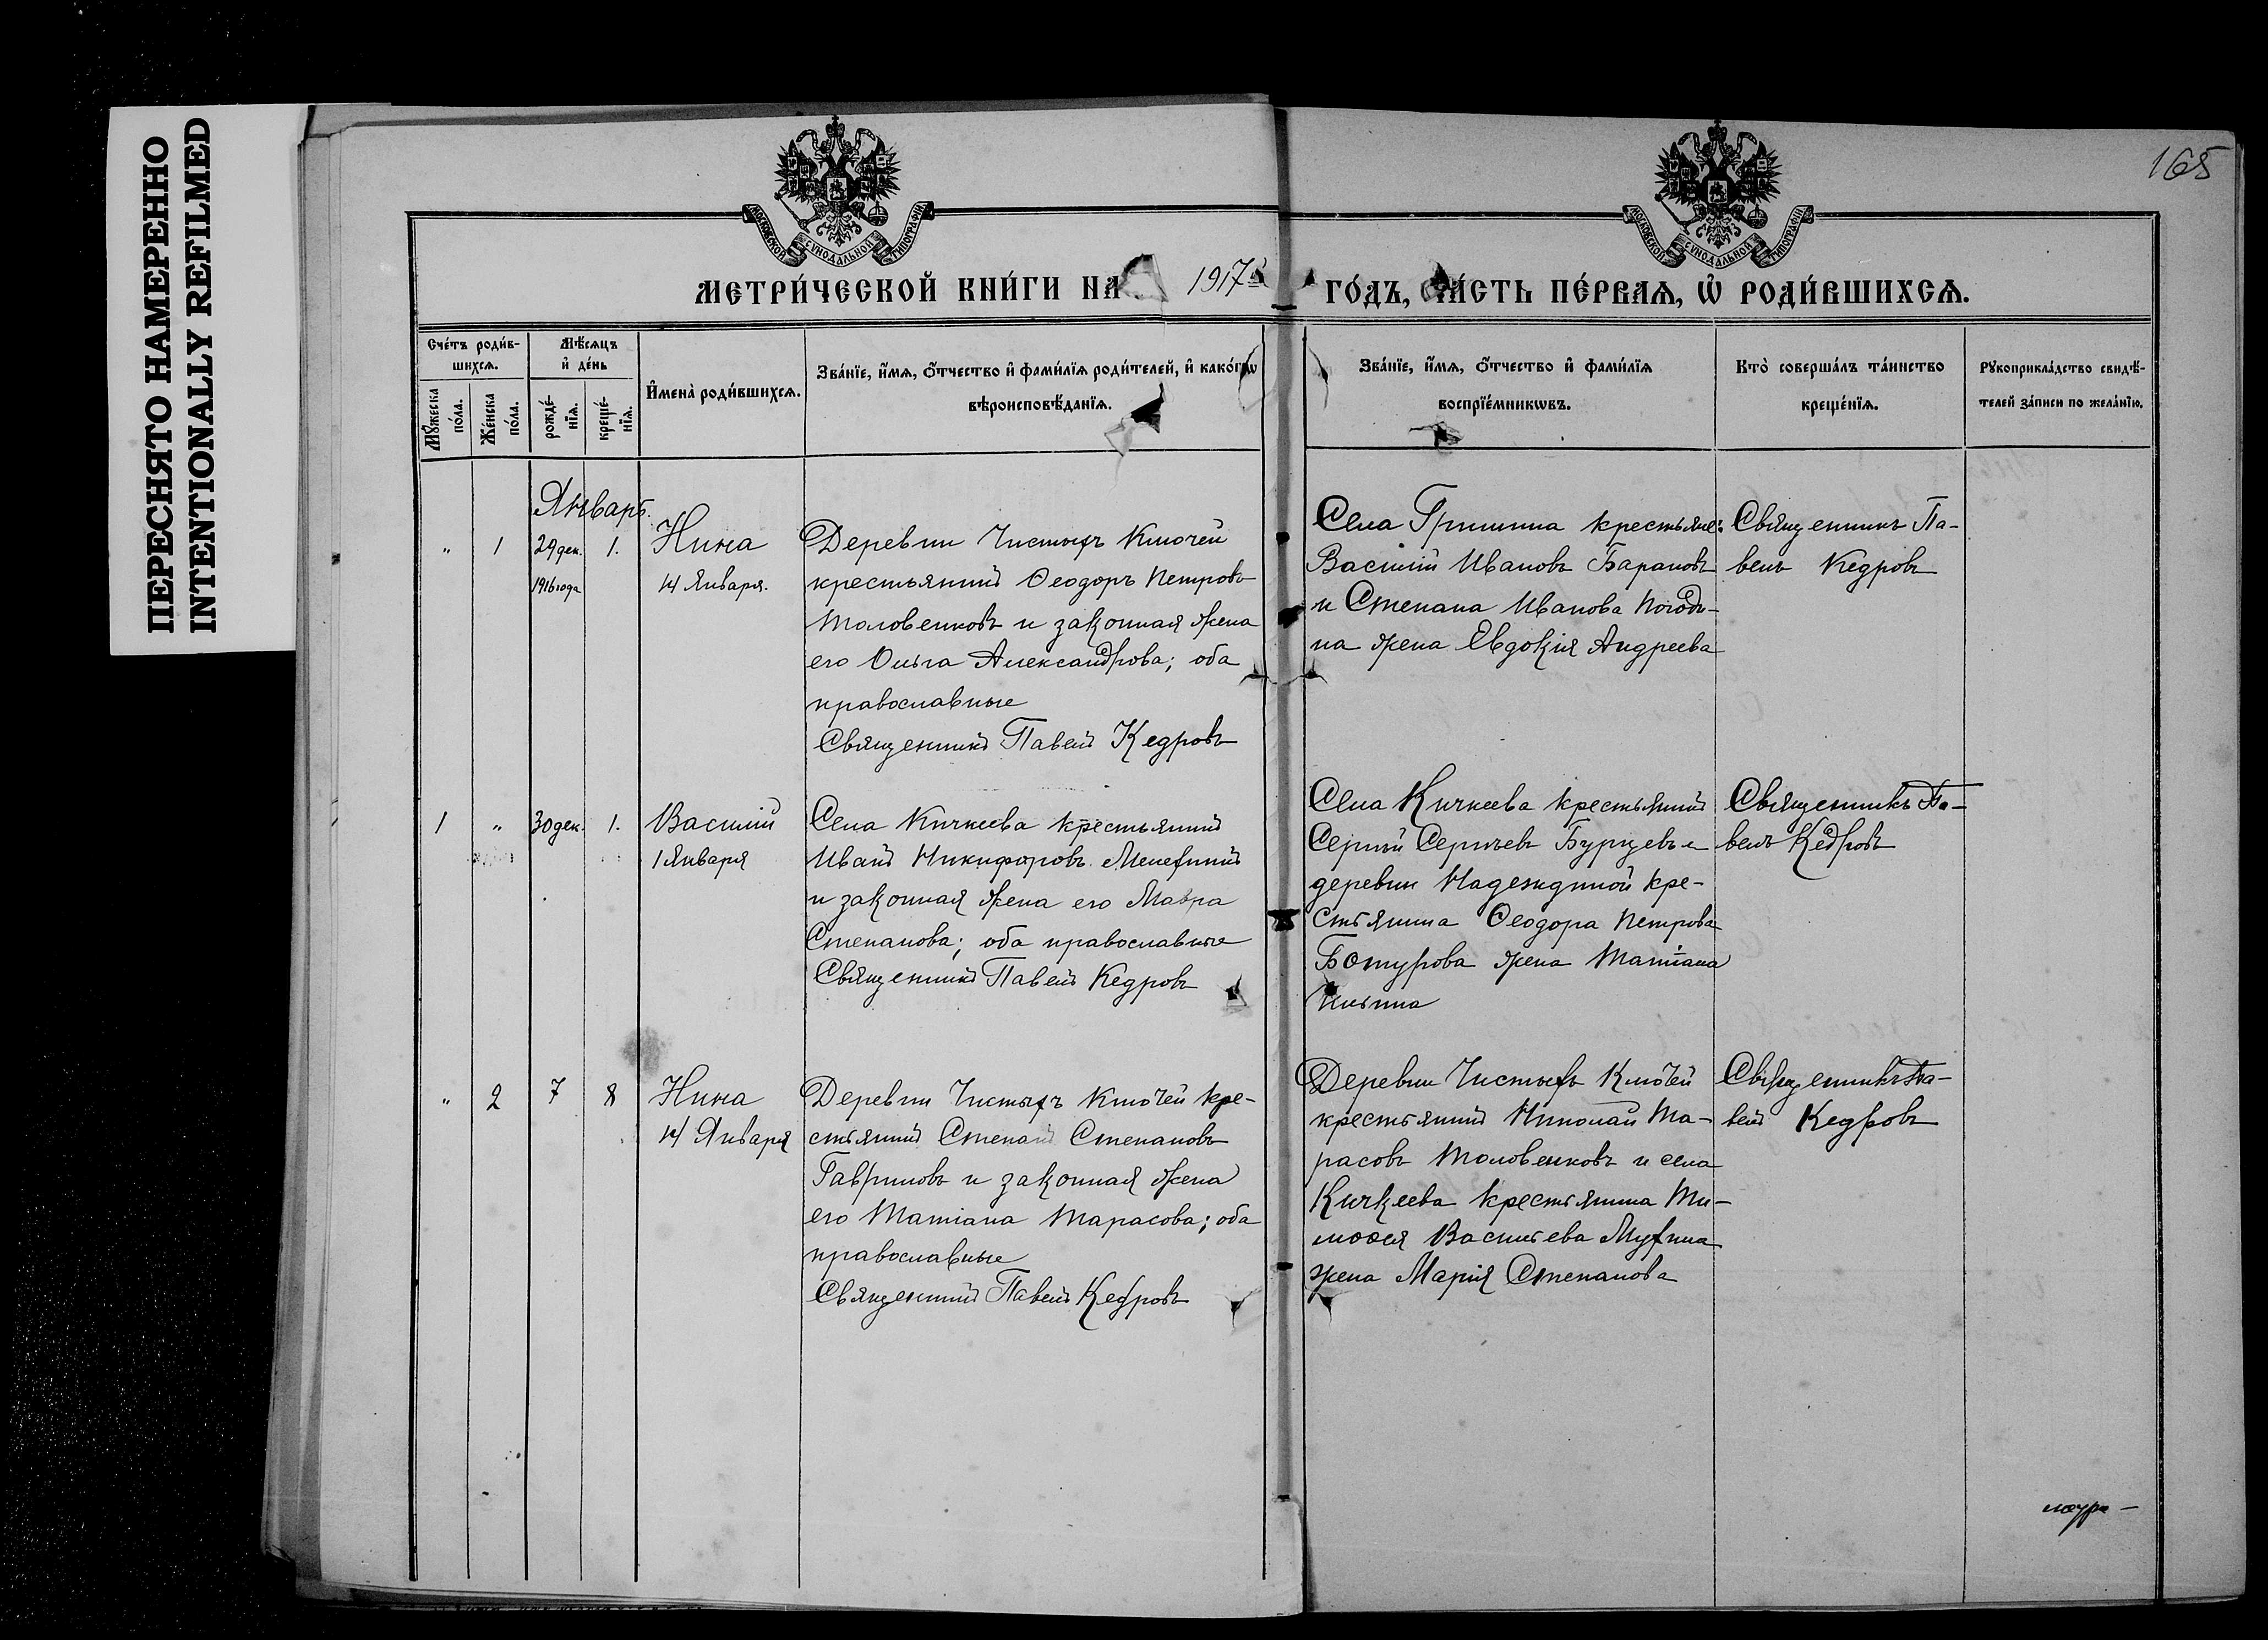 ПЕРЕСНЯТО НАМЕРЕННО
INTENTIONALLY REFILMED
165
МОСКОВСКОЙ СѴНОДАЛЬНОЙ ТИПОГРАФІИ
МОСКОВСКОЙ СѴНОДАЛЬНОЙ ТИПОГРАФІИ
МЕТРИ́ЧЕСКОЙ КНИ́ГИ НА 1917й ГО́ДЪ, ЧА́СТЬ ПЕ́РВАѦ, Ѡ҆ РОДИ́ВШИХСѦ.
Сче́тъ роди́в-
шихсѧ.
Мꙋ́жеска по́ла.
Же́нска по́ла.
Мѣ́сѧцъ
и҆ де́нь
рожде́-
нїѧ.
креще́-
нїѧ.
И҆мена̀ роди́вшихсѧ.
Зва́нїе, и҆́мѧ, ѻ҆́тчество и҆ фами́лїѧ роди́телей, и҆ како́гѡ
вѣроисповѣ́данїѧ.
Зва́нїе, и҆́мѧ, ѻ҆́тчество и҆ фами́лїѧ
воспрїе́мникѡвъ.
Кто̀ соверша́лъ та́инство
креще́нїѧ.
Рꙋкоприкла́дство свидѣ́-
телей за́писи по жела́нїю.
Январь.
" 1 29 дек. 1.
1916 года
Нина
14 Января.
Деревни Чистыхъ Ключей
крестьянинъ Ѳеодоръ Петровъ
Толовенковъ и законная жена
его Ольга Александрова; оба
православные
Священникъ Павелъ Кедровъ
Села Гришина крестьяне:
Василій Ивановъ Барановъ
и Степана Иванова Погоди-
на жена Евдокія Андреева
Священникъ Па-
велъ Кедровъ
1 " 30 дек. 1.
Василій
1 Января
Села Кичкеева крестьянинъ
Иванъ Никифоровъ Мелехинъ
и законная жена его Мавра
Степанова; оба православные
Священникъ Павелъ Кедровъ
Села Кичкеева крестьянинъ
Сергѣй Сергѣевъ Бурцевъ и
деревни Надеждиной кре-
стьянина Ѳеодора Петрова
Ботурова жена Татіана
Ильина
Священникъ Па-
велъ Кедровъ
" 2 7 8
Нина
14 Января
Деревни Чистыхъ Ключей кре-
стьянинъ Степанъ Степановъ
Гавриловъ и законная жена
его Татіана Тарасова; оба
православные
Священникъ Павелъ Кедровъ
Деревни Чистыхъ Ключей
крестьянинъ Николай Та-
расовъ Толовенковъ и села
Кичкеева крестьянина Ти-
моѳея Васильева Мухина
жена Марія Степанова
Священникъ Па-
велъ Кедровъ